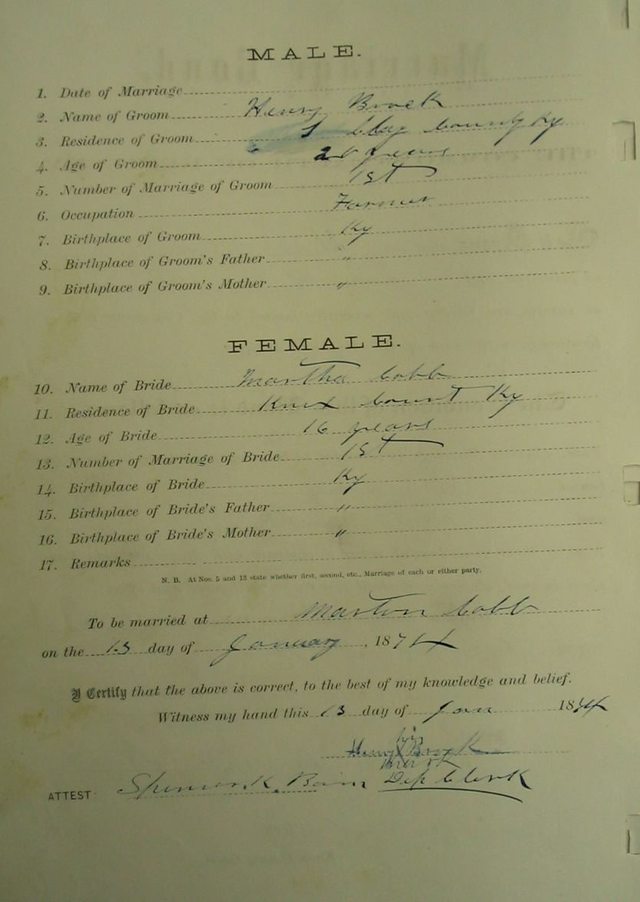 MALE.
1. Date of Marriage
2. Name of Groom Henry Brock
3. Residence of Groom Clay County Ky
4. Age of Groom 20 years
5. Number of Marriage of Groom 1st
6. Occupation Farmer
7. Birthplace of Groom Ky
8. Birthplace of Groom's Father "
9. Birthplace of Groom's Mother "
FEMALE.
10. Name of Bride Martha Cobb
11. Residence of Bride Knox Count Ky
12. Age of Bride 16 years
13. Number of Marriage of Bride 1st
14. Birthplace of Bride Ky
15. Birthplace of Bride's Father "
16. Birthplace of Bride's Mother "
17. Remarks
N. B. At Nos. 5 and 13 state whether first, second, etc., Marriage of each or either party.
To be married at Marton Cobb
on the 15 day of January, 1874
I Certify that the above is correct, to the best of my knowledge and belief.
Witness my hand this 13 day of Jan 1874
his
Henry X Brock
mark
ATTEST: Dep Clerk